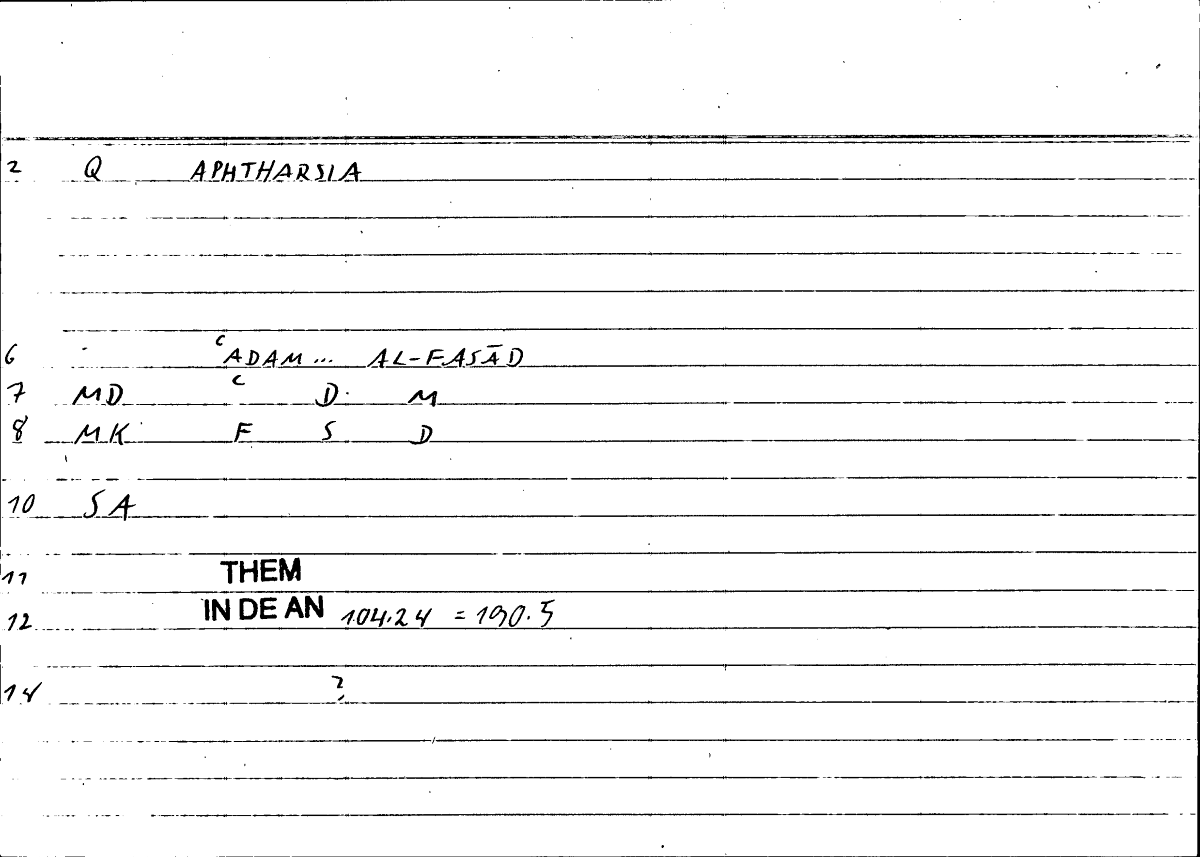 2 Q APHTHARSIA
6 ʿADAM... AL-FASĀD
7 MD ʿ D M
8 MK F S D
10 SA
11 THEM
12 IN DE AN 104.24 = 190.5
14 ?